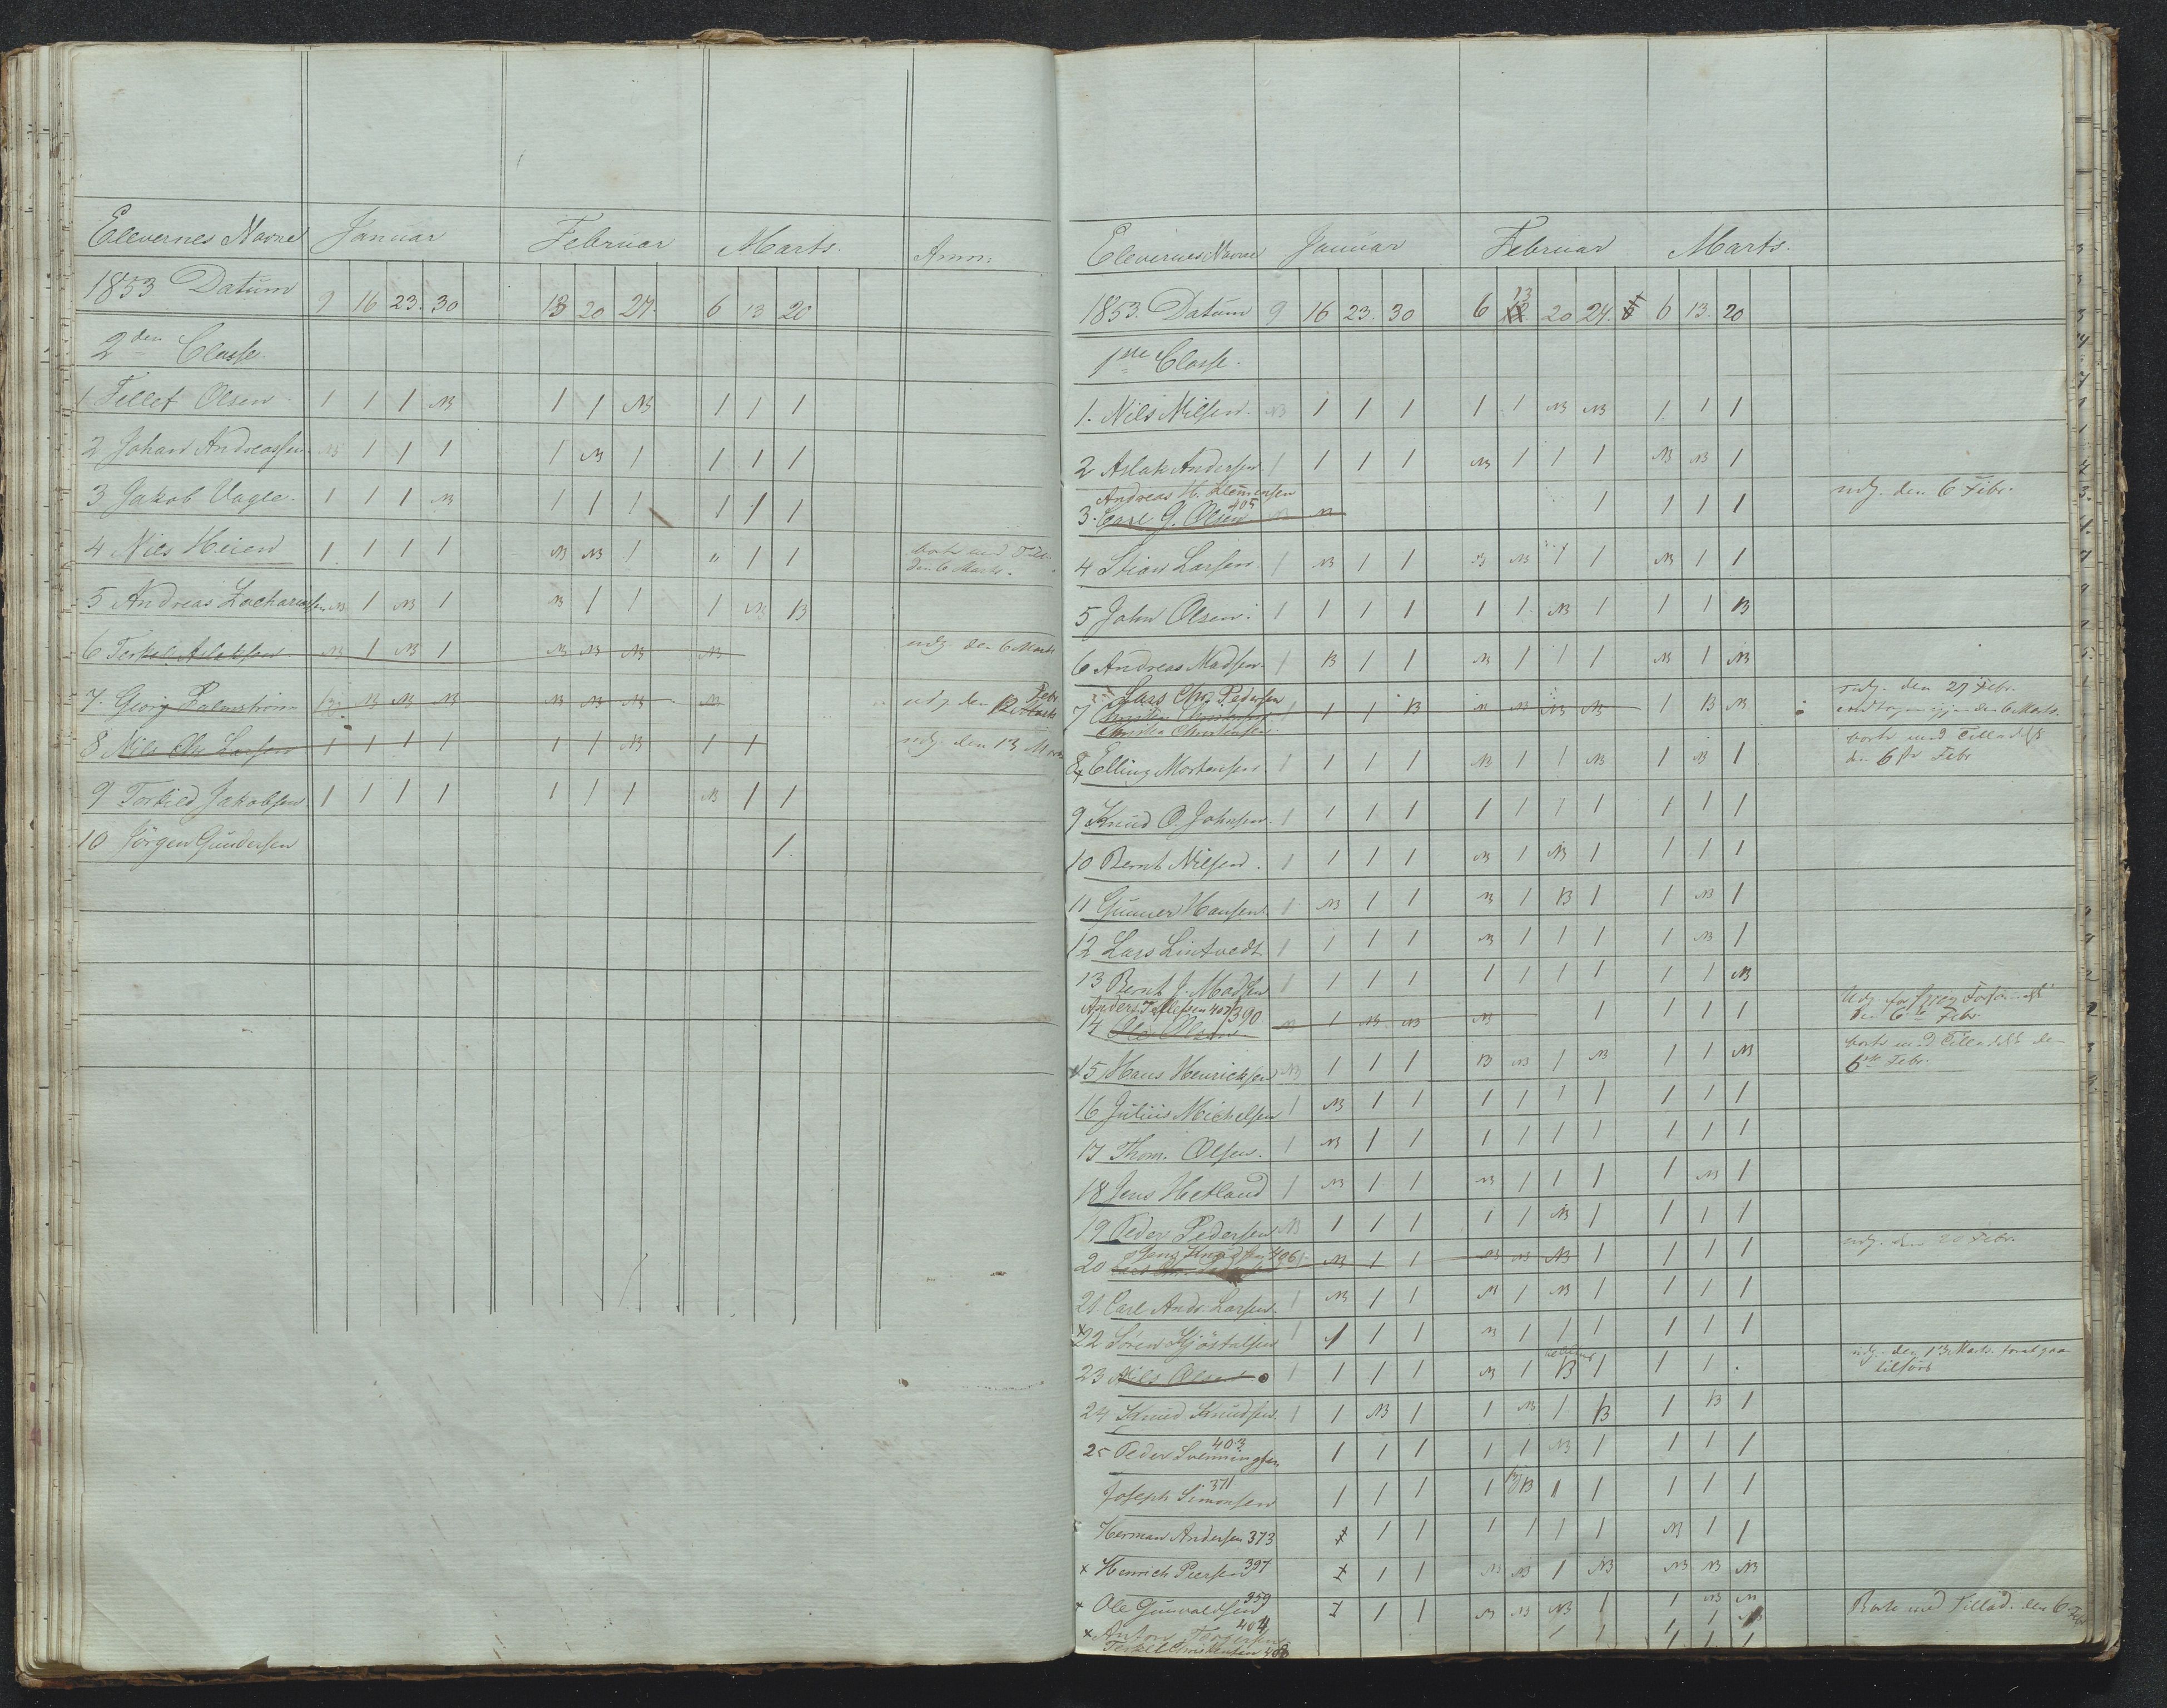 Elevernes Navne Januar Februar Marts. Anm:
1853 Datum 9 16 23. 30 13 20 27. 6 13 20
2den Classe.
1 Tellef Olsen 1 1 1 NB 1 1 NB 1 1 1
2 Johan Andreassen NB 1 1 1 1 NB 1 1 1 1
3 Jakob Vagle. 1 1 1 NB 1 1 1 1 1 1
4 Nils Heien 1 1 1 1 NB NB 1 " 1 1
den 6 Marts.
5 Andreas Zachariassen NB 1 NB 1 NB 1 1 1 NB B
6 Terkel Aslaksen NB 1 NB 1 NB NB NB NB udg. den 6 Marts
7. Georg Palmstrøm NB NB NB NB NB NB NB udg. den
8 Nils Chr Larsen 1 1 1 1 1 1 NB 1 1 udg. den 13 Marts
9 Torkild Jakobsen 1 1 1 1 1 1 1 NB 1 1
10 Jörgen Gundersen 1.
Elevernes Navne Januar Februar Marts.
1853. Datum 9 16 23. 30 6 13 20 27. 6 13. 20
1ste Classe.
1. Nils Nilsen. NB 1 1 1 1 1 NB NB 1 1 1
2 Aslak Andersen. 1 1 1 1 NB 1 1 1 NB NB 1
Andreas H. Klemensen
3. Carl G. Olsen 405 1 1 1 1 udg. den 6 Febr.
4 Stian Larsen. 1 NB 1 1 NB NB 1 1 NB 1 1
5 John Olsen. 1 1 1 1 1 1 NB 1 1 1 B
6 Andreas Madsen. 1 B 1 1 NB 1 1 1 NB 1 NB
Lars Chr. Pedersen
7 1 1 B NB NB NB 1 B NB udg. den 27 Febr.
Christen Christensen den 6 Marts.
8 Elling Mortensen. 1 1 1 1 NB 1 1 NB 1 NB 1 borte med Tilladelse
den 6te Febr
9 Knud O. Johnsen. 1 1 1 1 1 1 1 1 1 1 1
10 Bernt Nilsen. 1 1 1 1 NB 1 NB 1 1 1 1
11 Gunner Hansen. 1 NB 1 1 NB 1 B 1 1 NB 1
12 Lars Lintvedt 1 1 1 1 NB 1 1 1 1 NB 1
13 Bernt J. Madsen 1 1 1 1 1 1 1 1 1 1 NB
Anders Tellefsen 390
14 Ole Olsen 1 NB NB NB 1 1 1 1 den 6te Febr.
15 Hans Henricksen NB 1 1 1 B NB 1 NB 1 1 NB borte med Tilladelse den
6te Febr.
16 Julius Michelsen 1 NB 1 1 1 1 1 1 1 1 1
17 Thom. Olsen. 1 NB 1 1 1 1 1 1 1 1 1
18 Jens Hetland 1 NB 1 1 NB 1 1 1 1 NB 1
19 Peder Pedersen NB 1 1 1 1 1 NB 1 1 1 1
Jens Knudsen 406
20 NB 1 1 NB NB NB 1 1 1 1 udg. den 20 Febr.
21. Carl Andr. Larsen. 1 NB 1 1 NB 1 NB 1 1 1 1
x 22 Sören Kjöstelsen 1 1 1 1 NB 1 1 1 1 1 1
23 Nils Olsen 1 1 1 1 NB 1 B 1 1 1 . udg. den 13 Marts. for at gaa
tilsöes
24 Knud Knudsen. 1 1 NB 1 1 NB 1 B 1 B 1
403
25 Peder Svenningsen 1 1 1 1 1 NB 1 1 1 1
371
Joseph Simonsen 1 1 1 1 B 1 1 1 1 1
Herman Andersen 373 1 1 1 1 1 1 1 NB 1 1
x Henrich Peersen 397 1 1 1 NB NB 1 NB NB NB NB
359
x Ole Gunvaldsen 1 1 1 NB NB NB 1 1 NB NB Borte med Tillad. den 6 Febr
404
x Anton 1 1 1 1
Terkel Christensen 408 1 1 1